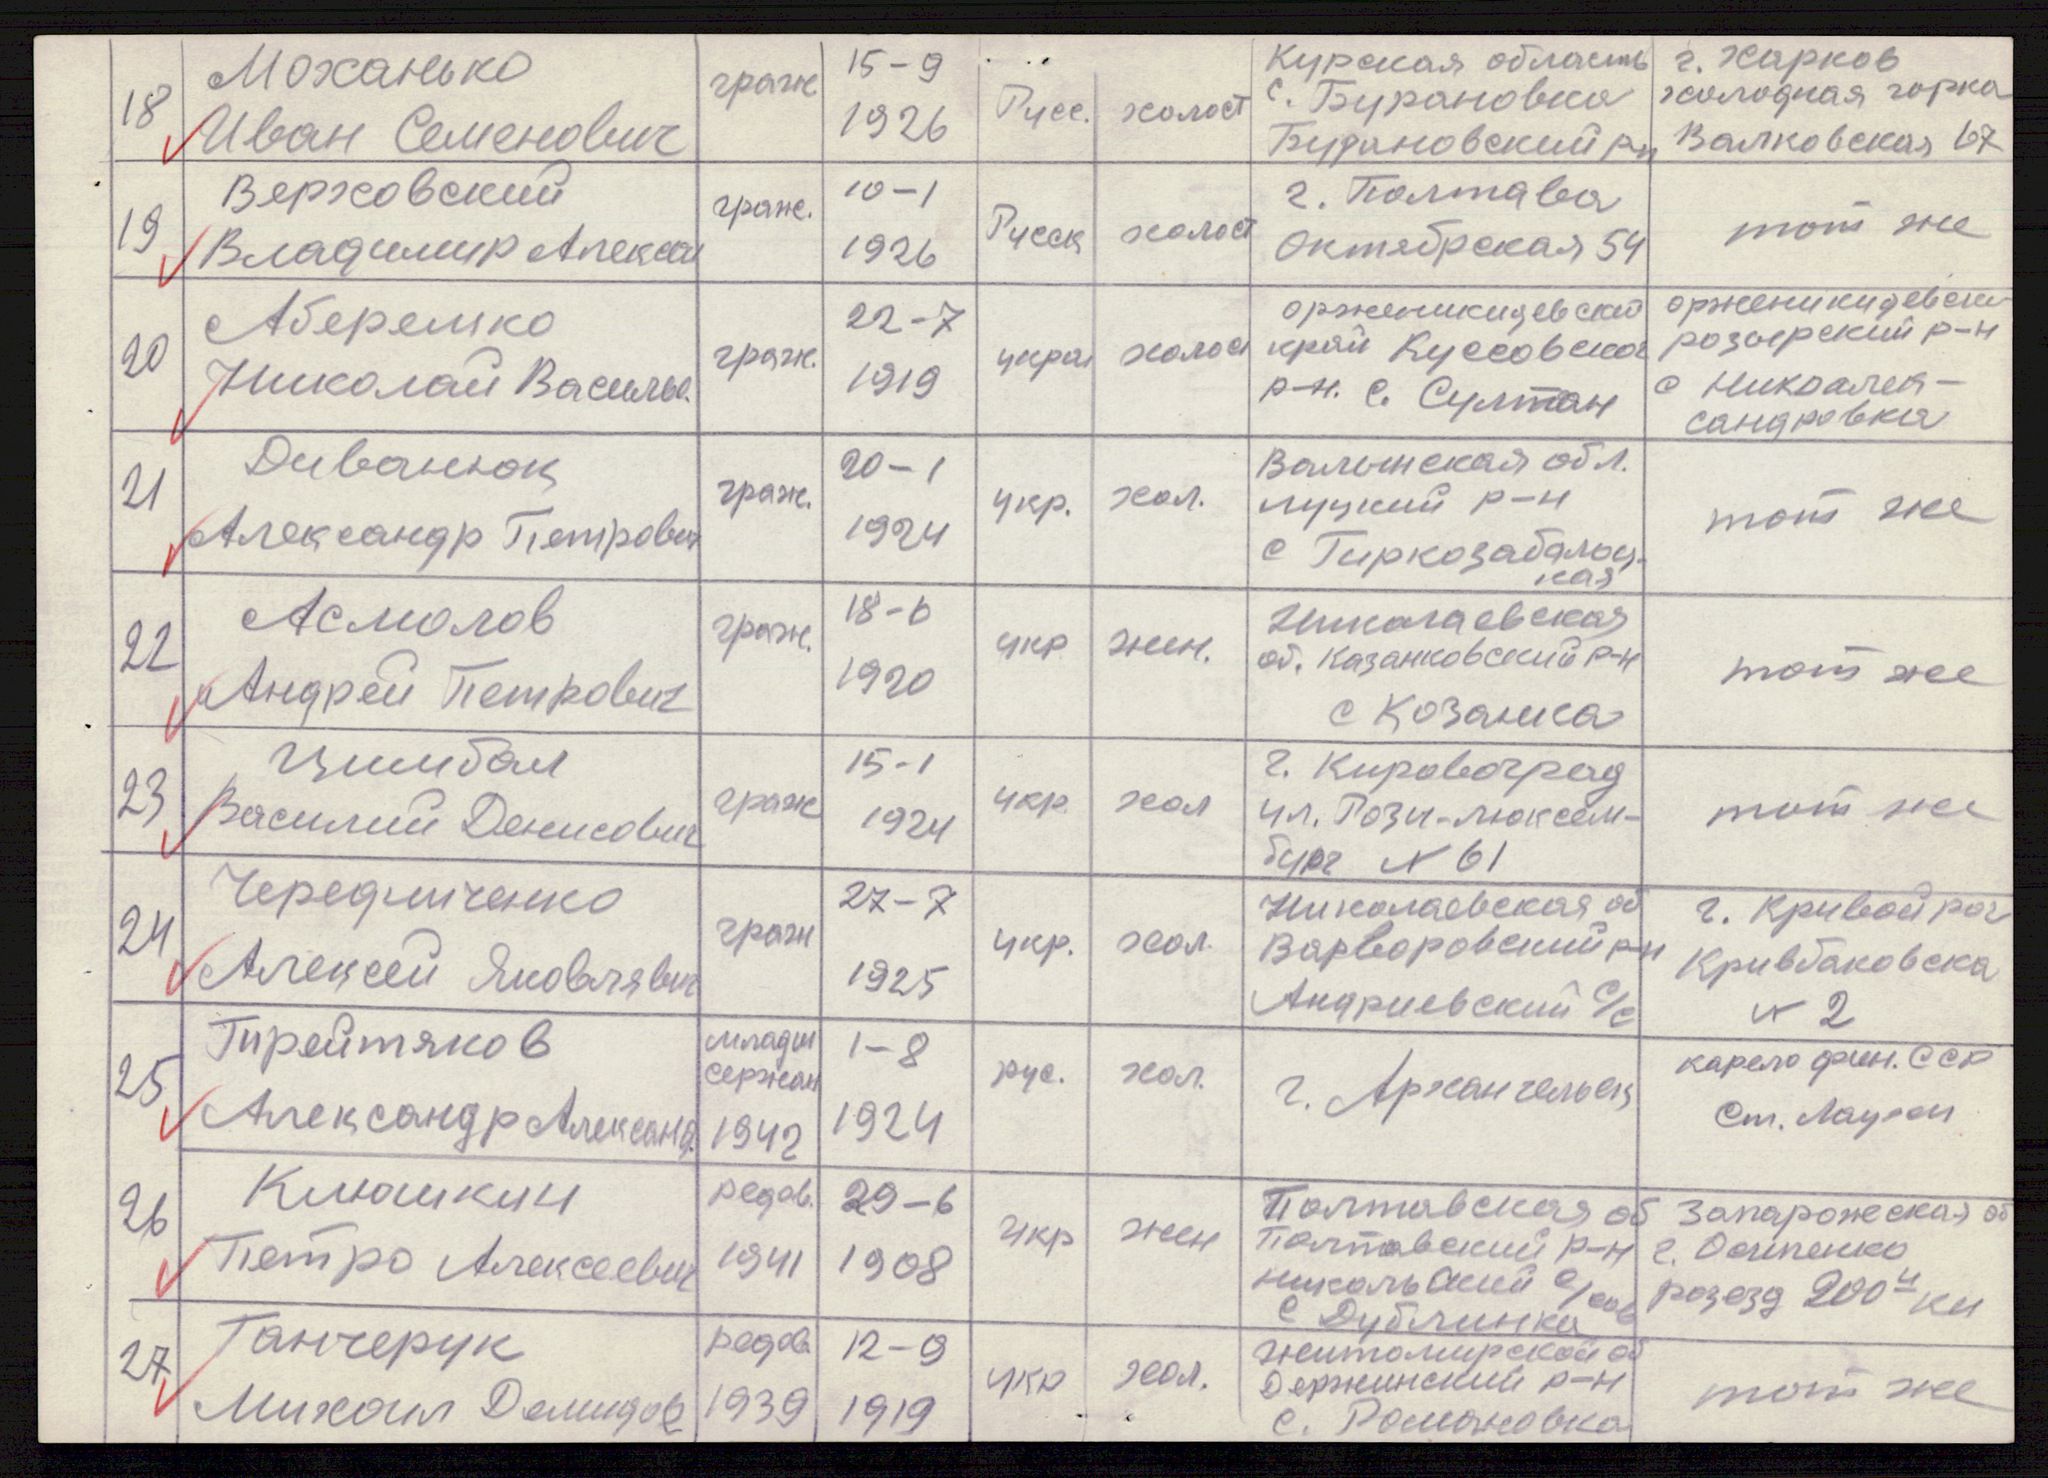 18
Моханько
Иван Семенович
граж
15-9
1926
Русс.
холост
Курская область
с. Бурановка
Бурановский р-н
г. Харков
холодная горка
Валковская 67
19
Верховский
Владимир Алексан
граж.
10-1
1926
Русск
холост
г. Полтава
Октябрская 54
тот же
20
Аберемко
Николай Василье.
граж.
22-7
1919
украи
холост
орженикидевский
край Куссовской
р-н. с. Султан
орженикидевски
р-н
с Никоалек-
сандровка
21
Диванюк
Александр Петрович
граж.
20-1
1924
укр.
хол.
Валынская обл.
луцкий р-н
с
тот же
22
Асмолов
Андрей Петрович
граж.
18-6
1920
укр
жен.
Николаевская
об. Казанковский р-н
с Козанка
тот же
23
Цимбал
Василий Денисович
граж
15-1
1924
укр
хол
г. Кировоград
ул. Рози-люксем-
бург N 61
тот же
24
Чередниченко
Алексей Яковлявич
граж
27-7
1925
укр.
хол.
Николаевская об
Варворовский р-н
Андриевский с/с
г. Кривой рог
N 2
25
Александр Александ.
младш
сержан
1942
1-8
1924
рус.
хол.
г. Архангельск
карело фин. ССР
ст.
26
Клюшкин
Петро Алексеевич
редов.
1941
29-6
1908
укр
жен
Полтавская об
Полтавский р-н
никольский с/сов
с Дублинка
Запарожеская об
г. Осипенко
розезд 200й км
27
Ганчерук
Михаил Демидов
редов
1939
12-9
1919
укр
хол.
житомирской об
Держинский р-н
с. Романовка
тот же